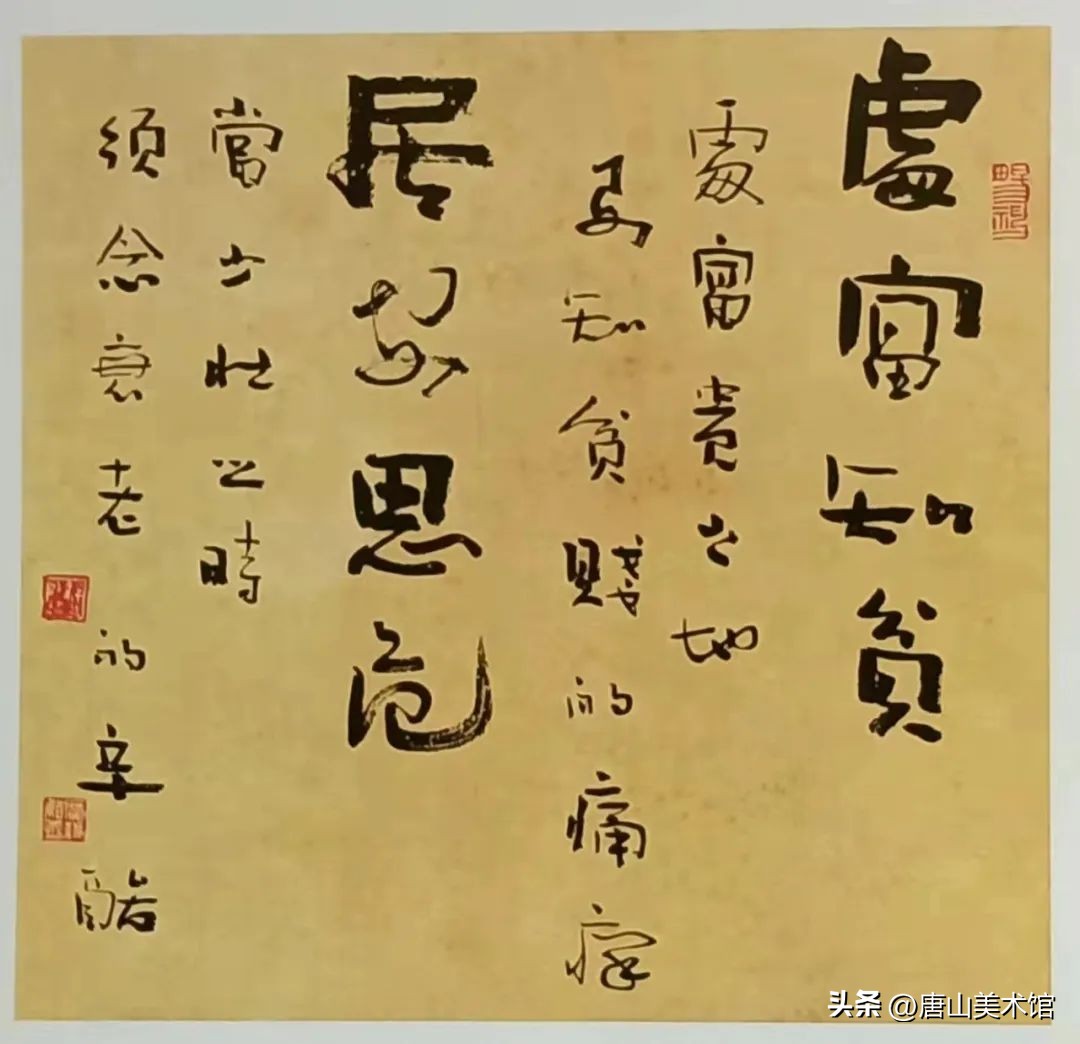 處富知貧
處富貴之地
要知貧賤的痛癢
居安思危
當少壯之時
須念衰老的辛酸
头条 @唐山美术馆